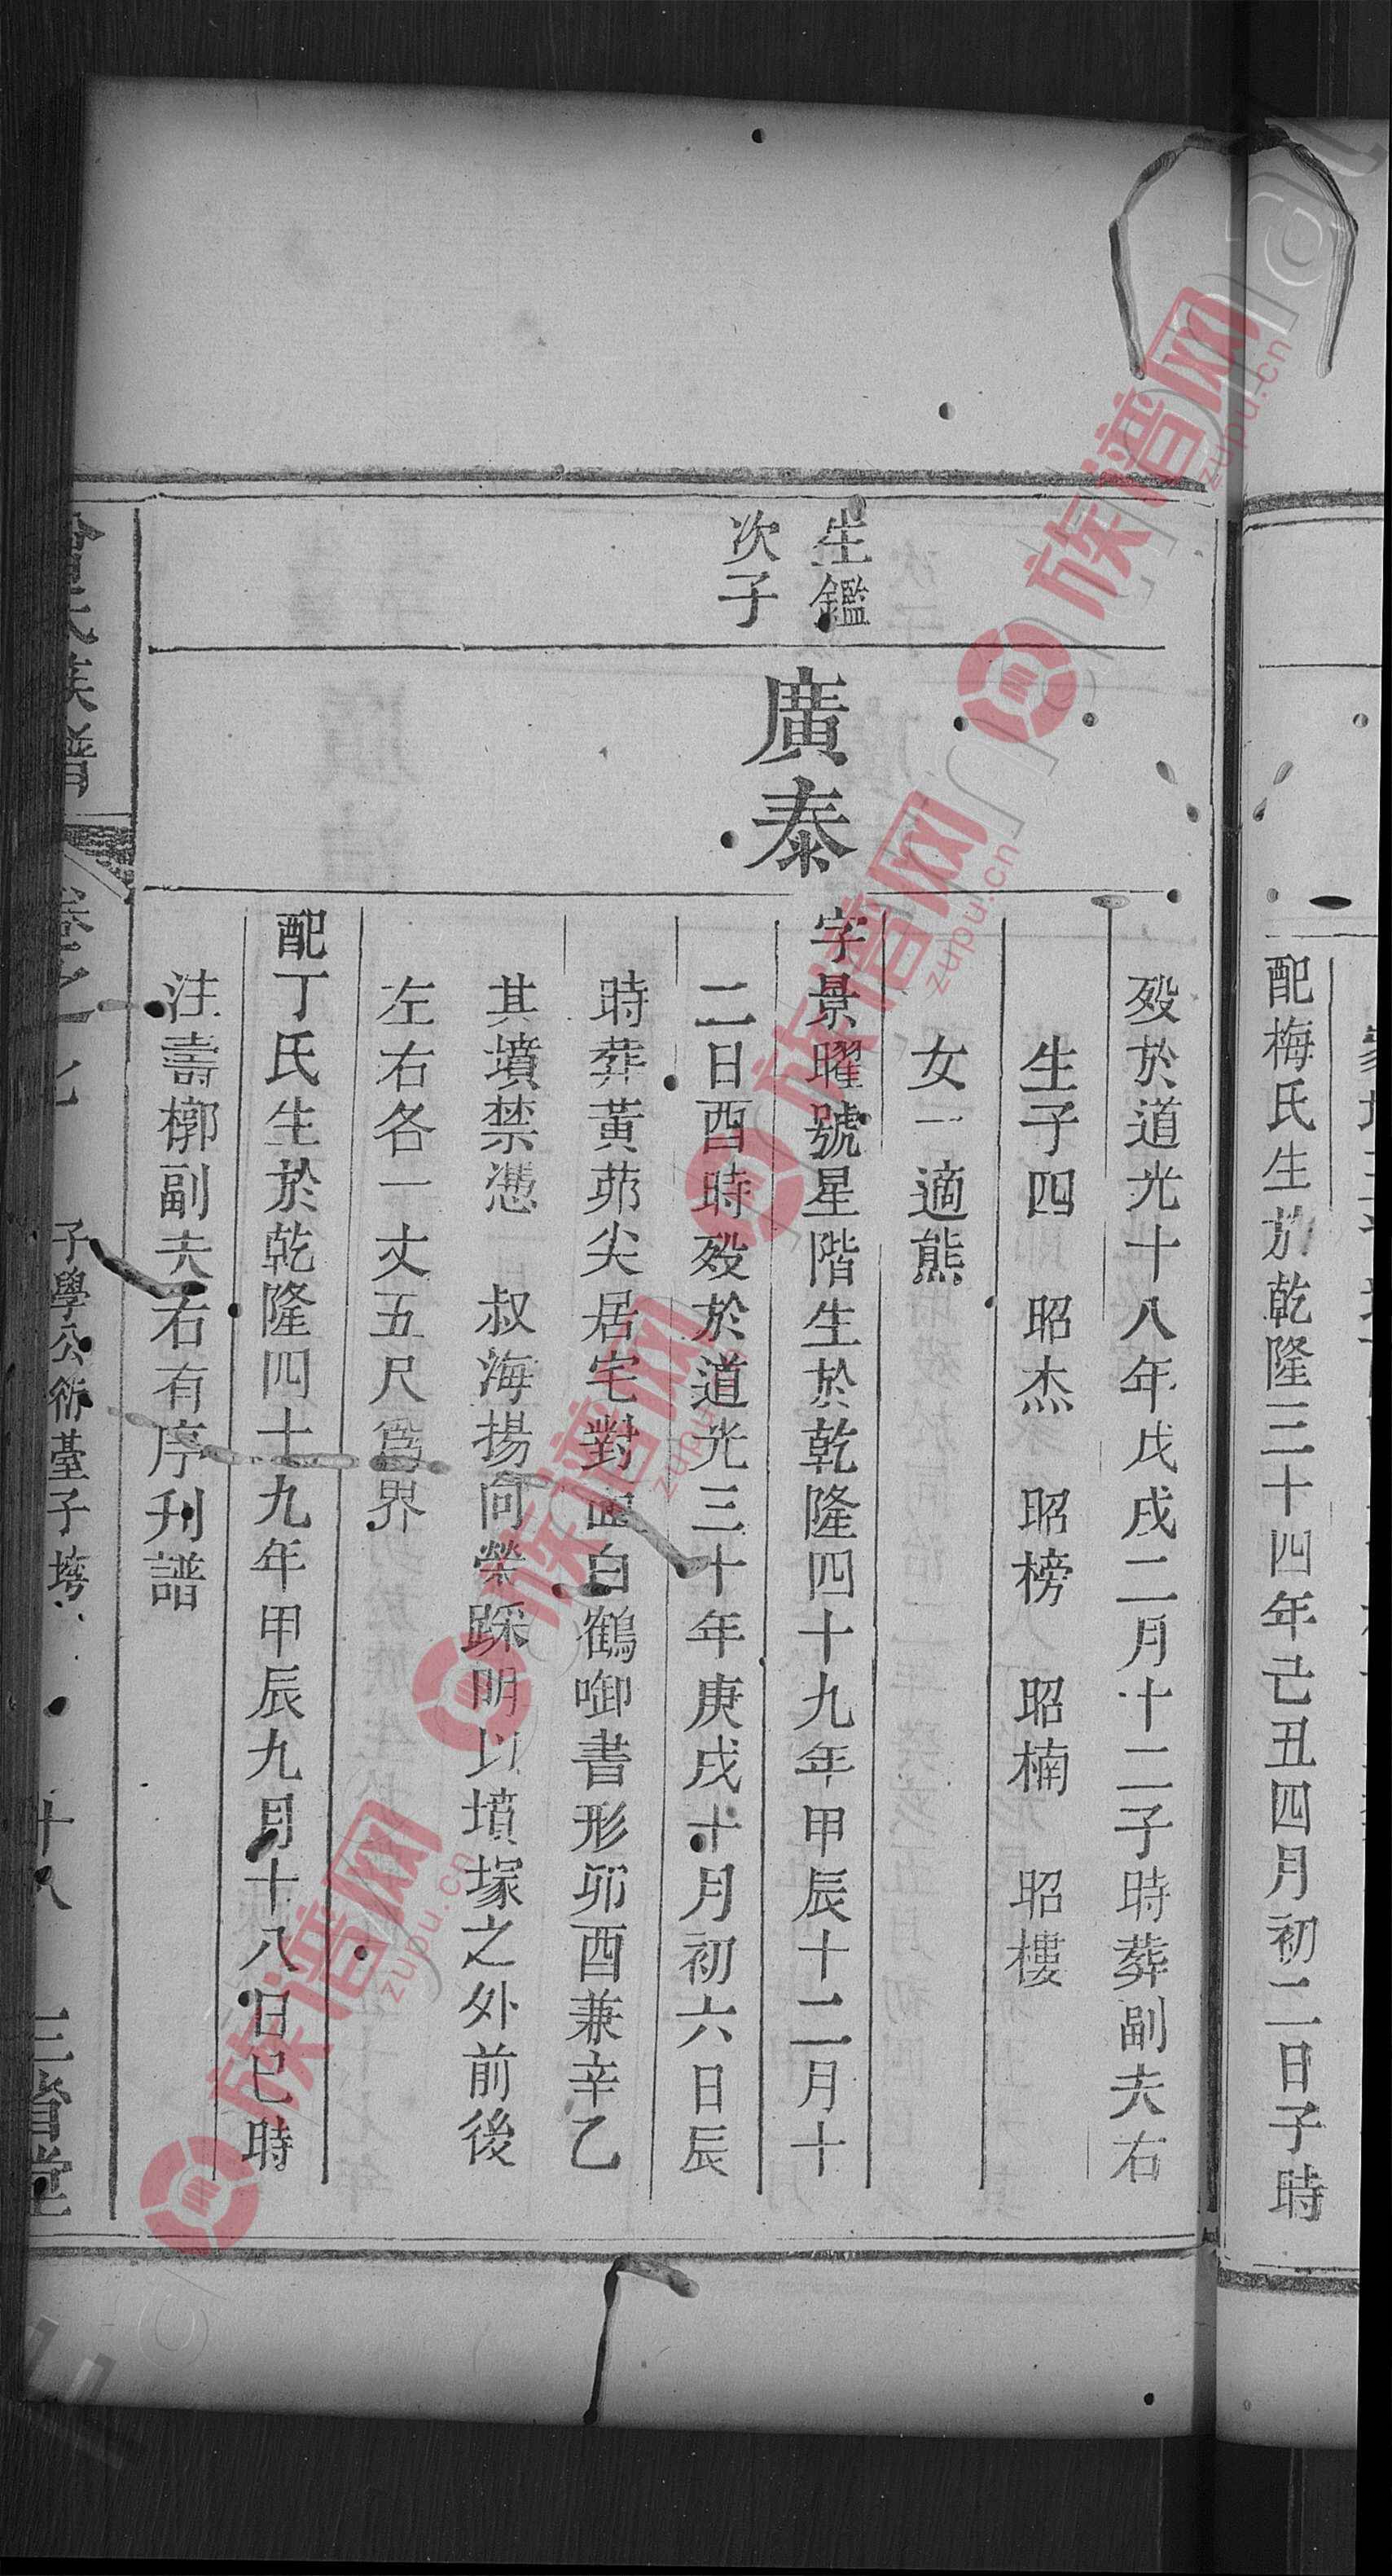 配梅氏生於乾隆三十四年己丑四月初二日子時
歿於道光十八年戊戌二月十二子時葬副夫右
生子四 昭杰 昭榜 昭楠 昭樓
女一適熊
生鑑
次子
廣泰
字景曜號星階生於乾隆四十九年甲辰十二月十
二日酉時歿於道光三十年庚戌十月初六日辰
時葬黃茆尖居宅對面白鶴啣書形卯酉兼辛乙
其墳禁憑 叔海揚問榮踩明以墳塚之外前後
左右各一丈五尺爲界
配丁氏生於乾隆四十九年甲辰九月十八日巳時
注壽槨副夫右有序刋譜
氏族譜
卷之一
子學公衕臺子塆
十八
三省堂
族谱网
zupu.cn
族谱网
zupu.cn
族谱网
zupu.cn
族谱网
zupu.cn